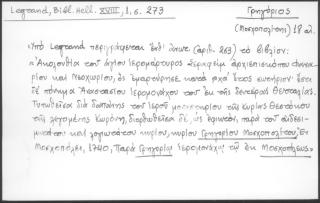 Legrand, Bibl. Hell. XVIII, 1, σ. 273
Γρηγόριος
(Μοσχοπολίτης) 18 αἰ.
Ὑπὸ Legrand περιγράφεται ἐνθ' ἀνωτ. (ἀριθ. 263) τὸ βιβλίον:
«Ἀκολουθία τοῦ ἁγίου ἱερομάρτυρος Σεραφεὶμ ἀρχιεπισκόπου Φαναρίου
καὶ Νεοχωρίου, ὃς ἐμαρτύρησε κατὰ τὸ ἔτος σωτήριον
πόνημα Ἀναστασίου Ἱερομονάχου τοῦ ἐκ τῆς δευτέρας Θετταλίας.
Τυπωθεῖσα διὰ δαπάνης τοῦ ἱεροῦ μοναστηρίου τῆς κυρίας Θεοτόκου
τῆς λεγομένης Κορώνη, διορθωθεῖσα δέ, ὡς ἐφικτόν, παρὰ τοῦ αἰδεσιμωτάτου
καὶ λογιωτάτου κυρίου, κυρίου Γρηγορίου Μοσχοπολίτου, Ἐν
Μοσχοπόλει, 1740, Παρὰ Γρηγορίῳ ἱερομονάχῳ τῷ ἐκ Μοσχοπόλεως»